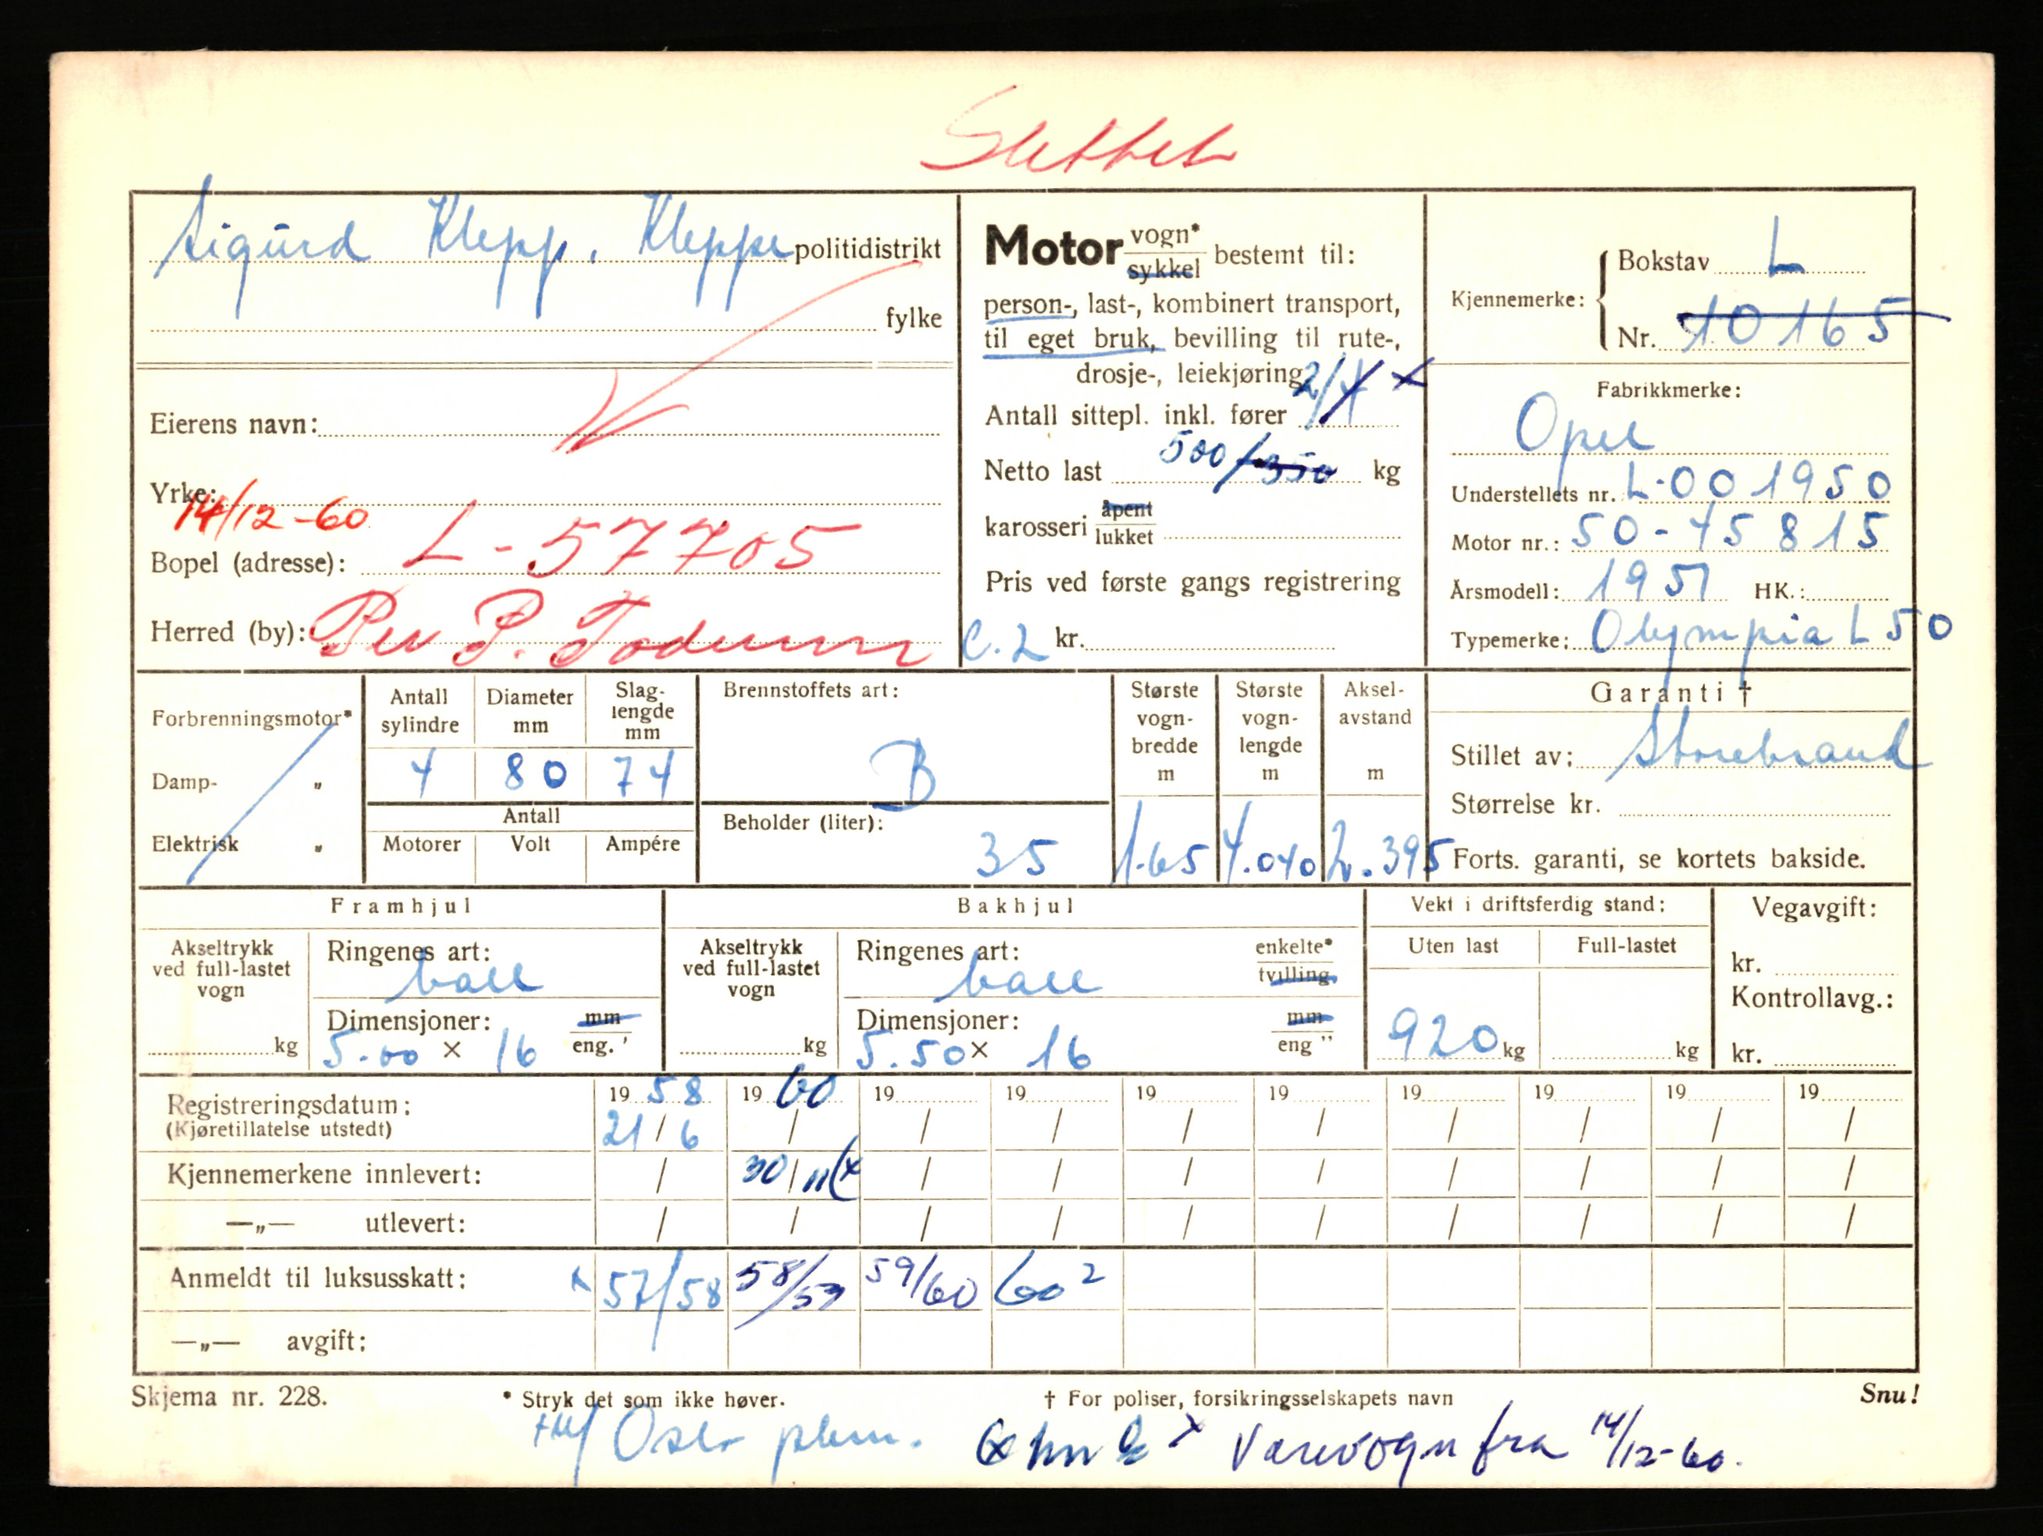 Slettet
Sigurd Klepp, Kleppe politidistrikt
fylke
Eierens navn:
Yrke:
14/12-60
Bopel (adresse): L-57705
Herred (by): Per P. Todnem
Motor vogn* sykkel bestemt til:
person-, last-, kombinert transport,
til eget bruk, bevilling til rute-,
drosje-, leiekjøring
Antall sittepl. inkl. fører 2/4 x
Netto last 500/350 kg
karosseri åpent lukket
Pris ved første gangs registrering
C.2 kr.
Kjennemerke: Bokstav L
Nr. 10165
Fabrikkmerke:
Opel
Understellets nr. L-001950
Motor nr.: 50-45815
Årsmodell: 1951 HK.:
Typemerke: Olympia L50
Forbrenningsmotor*
Damp- „
Elektrisk „
Antall sylindre Diameter mm Slag- lengde mm
4 80 74
Antall
Motorer Volt Ampére
Brennstoffets art:
B
Beholder (liter):
35
Største vogn- bredde m
1.65
Største vogn- lengde m
4.040
Aksel- avstand m
2.395
Garanti †
Stillet av: Storebrand
Størrelse kr.
Forts. garanti, se kortets bakside.
Framhjul
Akseltrykk ved full-lastet vogn
kg
Ringenes art:
ball
Dimensjoner: mm
5.00 x 16 eng. '
Bakhjul
Akseltrykk ved full-lastet vogn
kg
Ringenes art: enkelte* tvilling
ball
Dimensjoner: mm
5.50 x 16 eng "
Vekt i driftsferdig stand:
Uten last Full-lastet
920 kg kg
Vegavgift:
kr.
Kontrollavg.:
kr.
Registreringsdatum: 19 58 19 60 19 19 19 19 19 19 19 19
(Kjøretillatelse utstedt) 21/6 / / / / / / / / /
Kjennemerkene innlevert: / 30/11 (x / / / / / / / /
—„— utlevert: / / / / / / / / / /
Anmeldt til luksusskatt: x 57/58 58/59 59/60 60²
—„— avgift:
Skjema nr. 228. * Stryk det som ikke høver. † For poliser, forsikringsselskapets navn Snu!
Oslo x Varevogn fra 14/12-60.